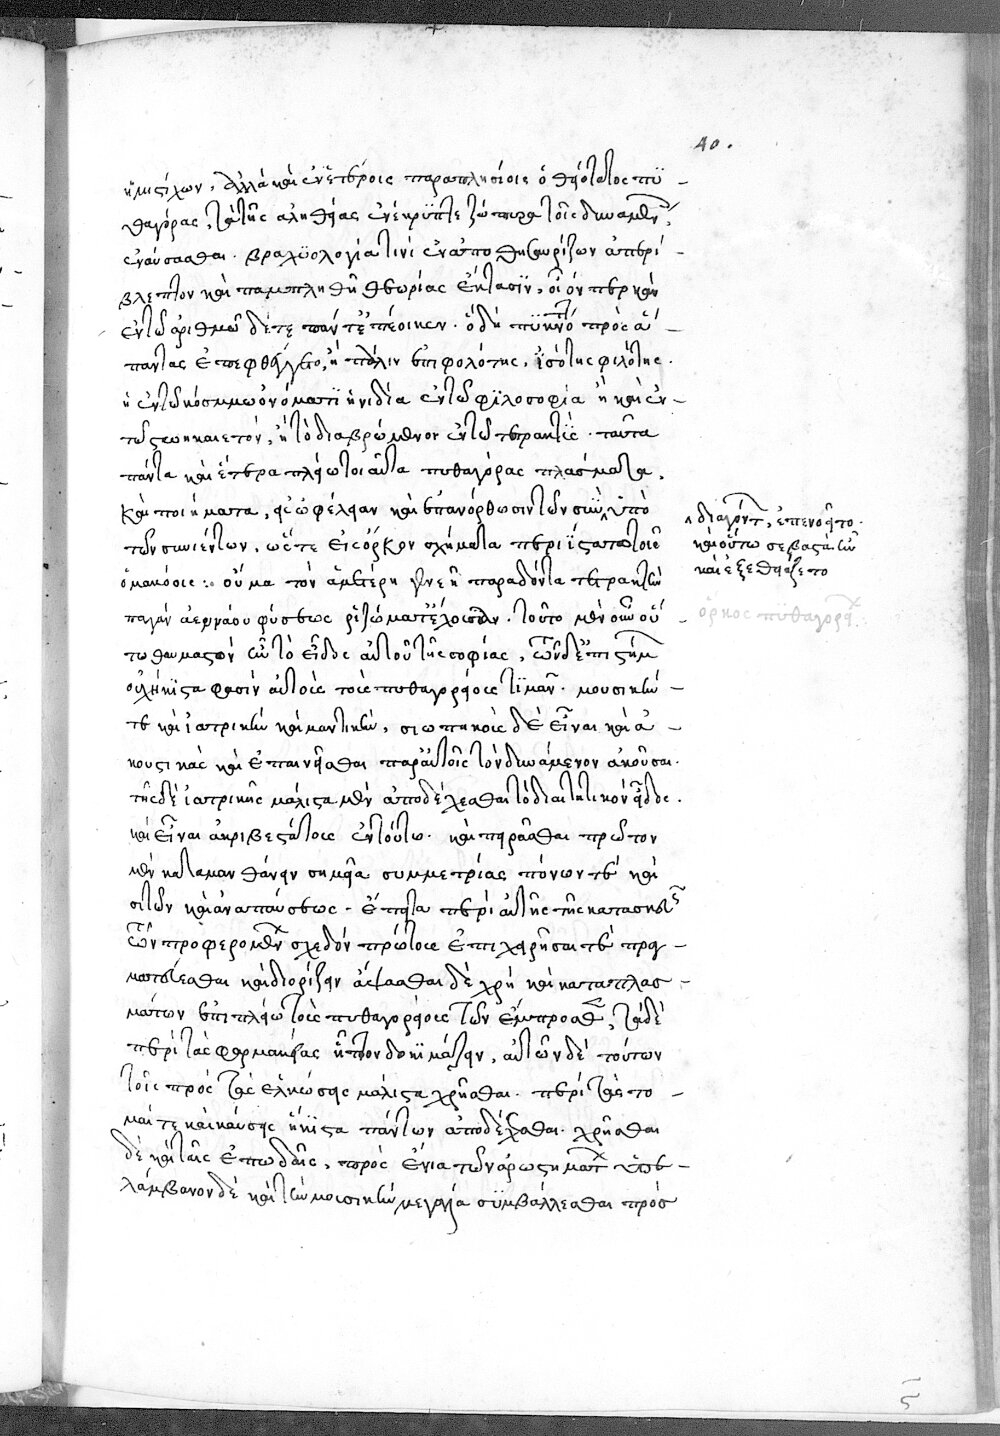 40.
ἡμιστίχων, ἀλλὰ καὶ ἐν ἑτέροις παραπλησίοις ὁ θειότατος πυ-
θαγόρας, τὰ τῆς ἀληθείας ἐνέκρυπτε ζώπυρα τοῖς δυναμένοις
ἐναύσασθαι. βραχυλογία τινὶ ἐναποθησαυρίζων ἀπερί-
βλεπτον καὶ παμπληθῆ θεωρίας ἔκτασιν, οἷόν περ καὶ
ἐν τῷ ἀριθμῷ δέ τε πάντ' ἐπέοικεν. ὃ δὴ πυκνότατα πρὸς ἅ-
παντας ἐπεφθέγγετο, ἢ πάλιν ἐπὶ φιλότης, ἰσότης φιλότης.
ἢ ἐν τῷ κόσμῳ ὀνόματι ἢ νὴ δία ἐν τῷ φιλοσοφία ἢ καὶ ἐν
τὸ διαβρώμενον ἐν τῷ τετρακτύς. ταῦτα
πάντα καὶ ἕτερα πλείω τοιαῦτα πυθαγόρας πλάσματα,
καὶ ποιήματα, εἰς ὠφέλειαν καὶ ἐπανόρθωσιν τῶν συν
^ διαγόντων, ἐπενοεῖτο.
καὶ οὕτω σεβαστὰ ἦν
καὶ ἐξεθειάζετο
ὑπὸ
τῶν συνιέντων, ὥστε εἰς ὅρκων σχήματα περιίστατο τοῖς
ὁμακόοις : οὐ μὰ τὸν ἁμετέρῃ γενεῇ παραδόντα τετρακτὺν
ὅρκος πυθαγορεί
παγὰν ἀεννάου φύσεως ῥιζώματ' ἔχουσαν. τοῦτο μὲν οὖν οὕ-
τω θαυμαστὸν ἦν τὸ εἶδος αὐτοῦ τῆς σοφίας, τῶν δ' ἐπιστημῶν
οὐχ ἥκιστα φασὶν αὐτοὺς τοὺς πυθαγορείους τιμᾶν. μουσικήν
τε καὶ ἰατρικὴν καὶ μαντικήν, σιωπηλοὺς δὲ εἶναι καὶ ἀ-
κουστικὰς καὶ ἐπαινεῖσθαι παρ' αὐτοῖς τὸν δυνάμενον ἀκοῦσαι.
τῆς δὲ ἰατρικῆς μάλιστα μὲν ἀποδέχεσθαι τὸ διαιτητικὸν εἶδος.
καὶ εἶναι ἀκριβεστάτους ἐν τούτῳ. καὶ πειρᾶσθαι πρῶτον
μὲν καταμανθάνειν σημεῖα συμμετρίας πόνων τε καὶ
σίτων καὶ ἀναπαύσεως. ἔπειτα περὶ αὐτῆς τῆς κατασκευῆς
τῶν προσφερομένων σχεδὸν πρώτους ἐπιχειρῆσαί τε πραγ-
ματεύεσθαι καὶ διορίζειν ἅψασθαι δὲ χρὴ καὶ καταπλασ-
μάτων ἐπὶ πλείω τοὺς πυθαγορείους τῶν ἔμπροσθεν, τὰ δὲ
περὶ τὰς φαρμακείας ἧττον δοκιμάζειν, αὐτῶν δὲ τούτων
τοῖς πρὸς τὰς ἑλκώσεις μάλιστα χρῆσθαι. περὶ τὰς το-
μάς τε καὶ καύσεις ἥκιστα πάντων ἀποδέχεσθαι. χρῆσθαι
δὲ καὶ ταῖς ἐπωδαῖς, πρὸς ἔνια τῶν ἀρρωστημάτων ὑπε-
λάμβανον δὲ καὶ τὴν μουσικὴν μεγάλα συμβάλλεσθαι πρός